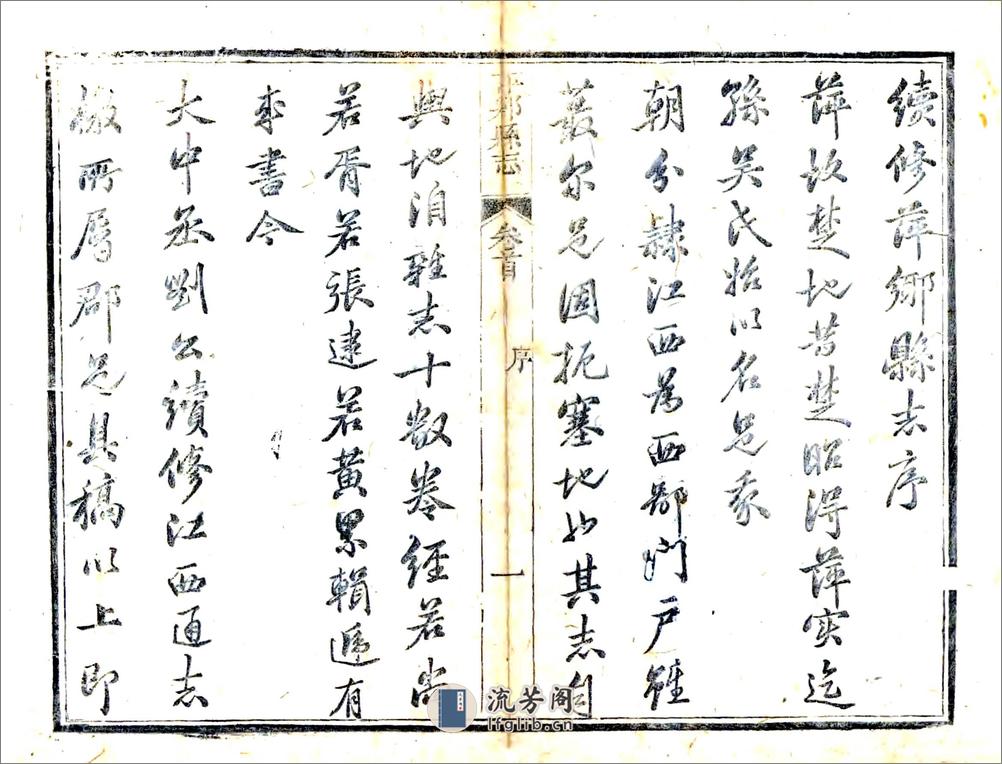 續修萍鄉縣志序
萍故楚地昔楚昭得萍實迄
孫吳氏始以名邑我
朝分隸江西為西部門戶雖
蕞尔邑固扼塞地也其志自
萍鄉縣志
卷首
序
一
輿地洎雜志十數卷經若尚
若胥若張逮若黃累輯遞有
成書今
大中丞劉公續修江西通志
檄所屬郡邑具稿以上即
流芳阁
lfglib.cn